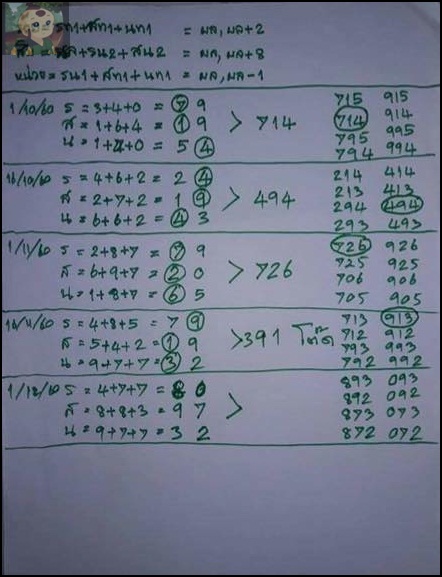 รท1+สท1+นท1 = ผล, ผล+2
สิบ = รล+รน2+สน2 = ผล, ผล+8
หน่วย = รน1+สท1+นท1 = ผล, ผล-1
1/10/60 ร = 3+4+0 = 7 9 715 915
ส = 1+6+4 = 1 9 > 714 714 914
น = 1+4+0 = 5 4 795 995
794 994
16/10/60 ร = 4+6+2 = 2 4 214 414
ส = 2+7+2 = 1 9 > 494 213 413
น = 6+6+2 = 4 3 294 494
293 493
1/11/60 ร = 2+8+7 = 7 9 726 926
ส = 6+9+7 = 2 0 > 726 725 925
น = 1+8+7 = 6 5 706 906
705 905
16/11/60 ร = 4+8+5 = 7 9 713 913
ส = 5+4+2 = 1 9 > 391 โต๊ด 712 912
น = 9+7+7 = 3 2 793 993
792 992
1/12/60 ร = 4+7+7 = 8 0 893 093
ส = 8+8+3 = 9 7 > 892 092
น = 9+7+7 = 3 2 873 073
872 072